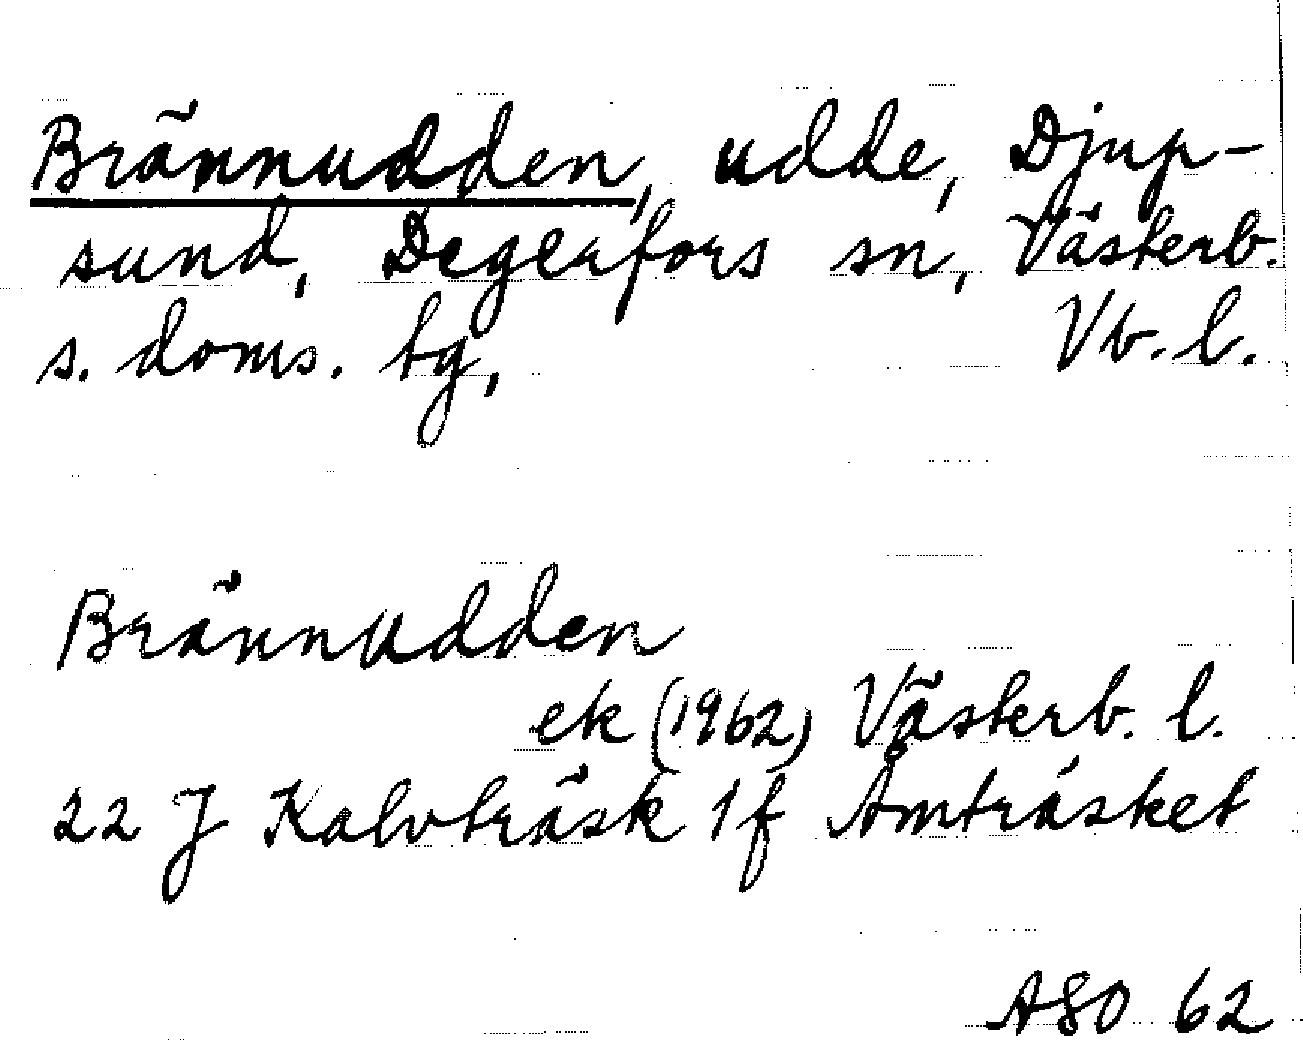 Brännudden, udde, Djup-
sund, Degerfors sn, Västerb.
s. doms. tg, Vb. l.
Brännudden
ek (1962) Västerb. l.
22 J Kalvträsk 1 f Åmträsket
ASO 62